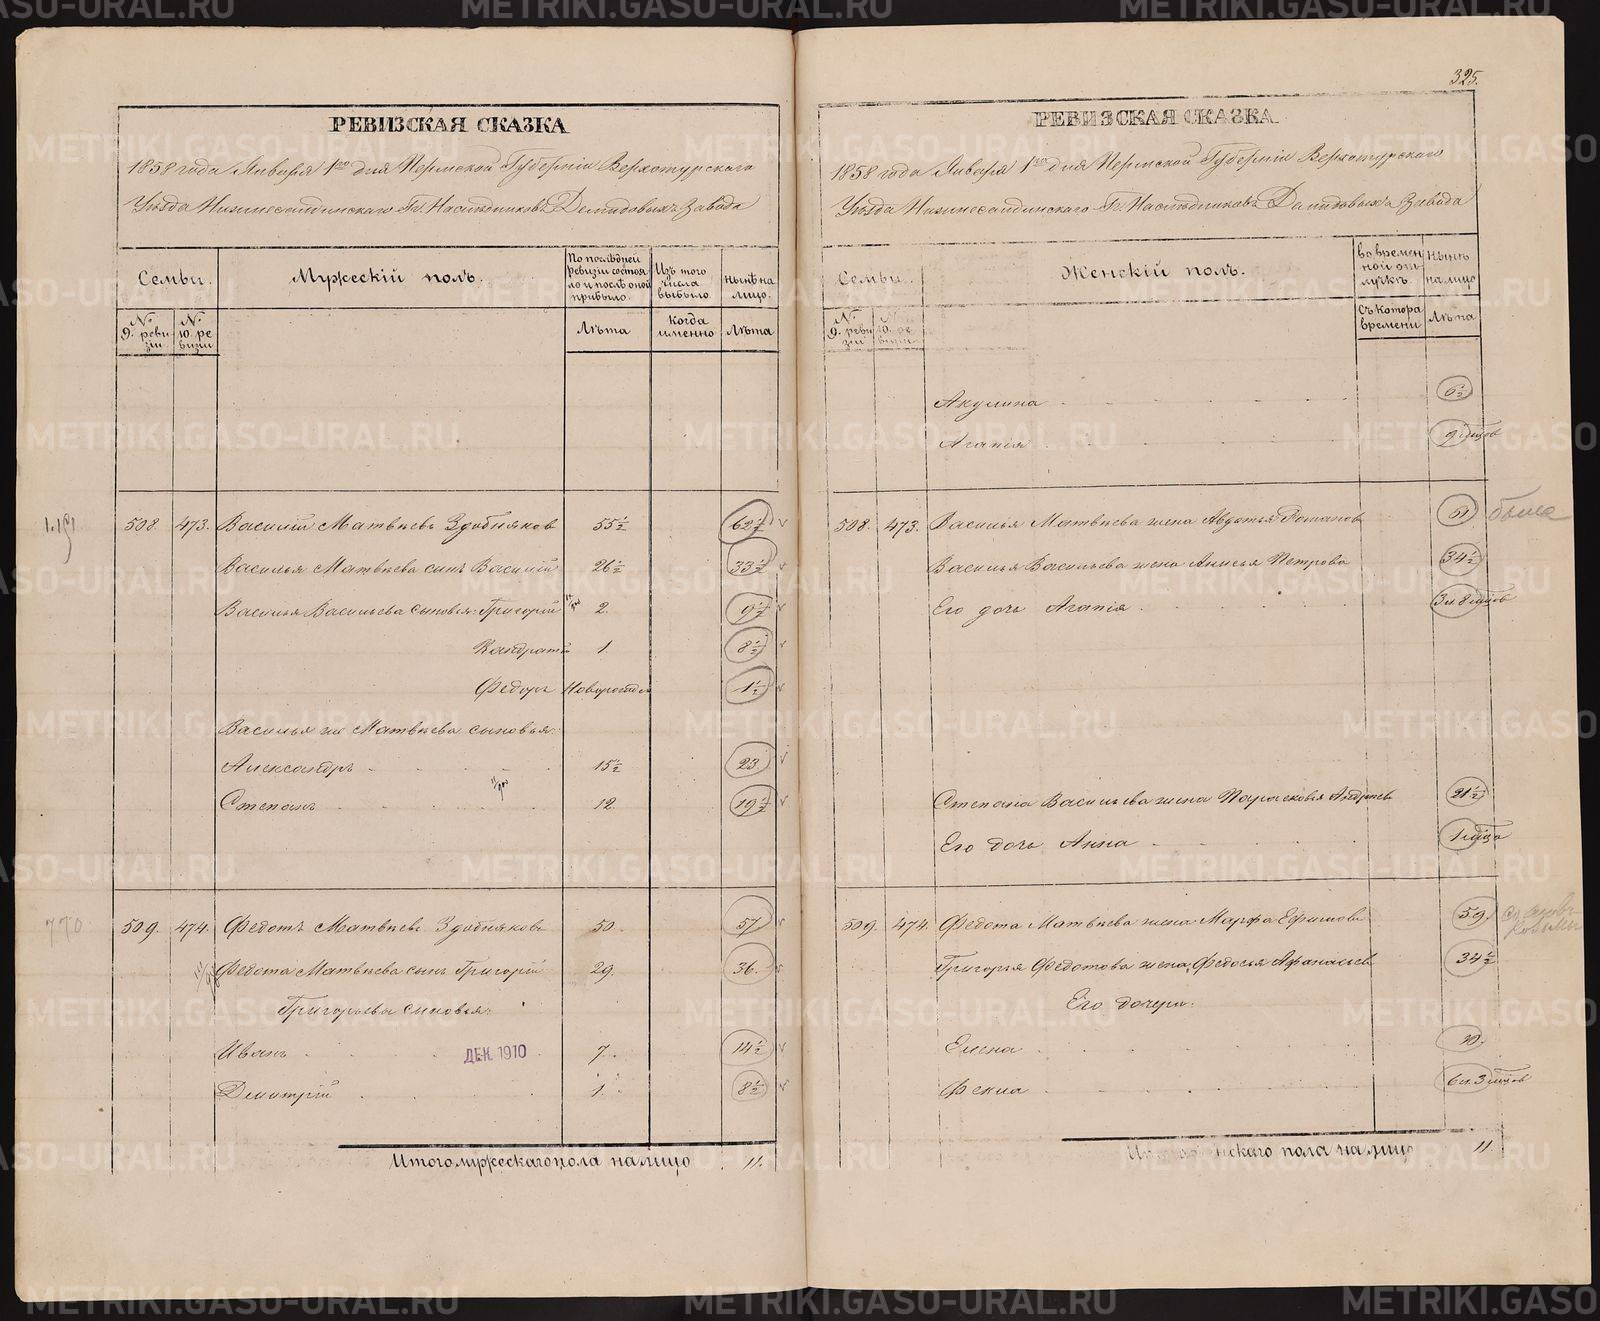 325.
РЕВИЗСКАЯ СКАЗКА
1858 года Января 1го дня Пермской Губерніи Верхотурскаго
Уѣзда Нижнесалдинскаго Гг. Наслѣдниковъ Демидовыхъ Завода
Семьи.
Мужескій полъ.
По послѣдней ревизіи состояло и послѣ оной прибыло.
Изъ того числа выбыло.
Нынѣ на лицо.
№ 9. ревизіи
№ 10. ревизіи
Лѣта
когда именно
Лѣта
508. 473. Василій Матвѣевъ Здобняковъ 55½ 62½
Василья Матвѣева сынъ Василій 26½ 33½
Василья Васильева сыновья: Григорій 2. 9½
Кондратій 1. 8½
Федоръ Новорожден 1½
Василья же Матвѣева сыновья:
Александръ 15½ 23.
Степанъ 12. 19½
770
509. 474. Федотъ Матвѣевъ Здобняковъ 50. 57
Федота Матвѣева сынъ Григорій 29. 36.
Григорьева сыновья:
Иванъ 7. 14½
ДЕК 1910
Дмитрій 1. 8½
Итого мужескаго пола на лицо 11.
РЕВИЗСКАЯ СКАЗКА
1858 года Января 1го дня Пермской Губерніи Верхотурскаго
Уѣзда Нижнесалдинскаго Гг. Наслѣдниковъ Демидовыхъ Завода
Семьи.
Женскій полъ.
Во временной отлучкѣ.
Нынѣ на лицо
№ 9. ревизіи
№ 10. ревизіи
Съ котора времени
Лѣта
Акулина 6½
Агапія 9 мѣсцов
508. 473. Василья Матвѣева жена Авдотья Романов 61
Василья Васильева жена Анисья Петрова 34½
Его дочь Агапія 3 и 8 мѣсцов
Степана Васильева жена Парасковья Андреев 21½
Его дочь Анна 1 мѣсца
509. 474. Федота Матвѣева жена Марфа Ефимова 59.
Григорья Федотова жена Федосья Афанасьев 34½
Его дочери:
Елена 10.
Фекла 6 и 3 мѣсцов
Итого женскаго пола на лицо 11.
METRIKI.GASO-URAL.RU